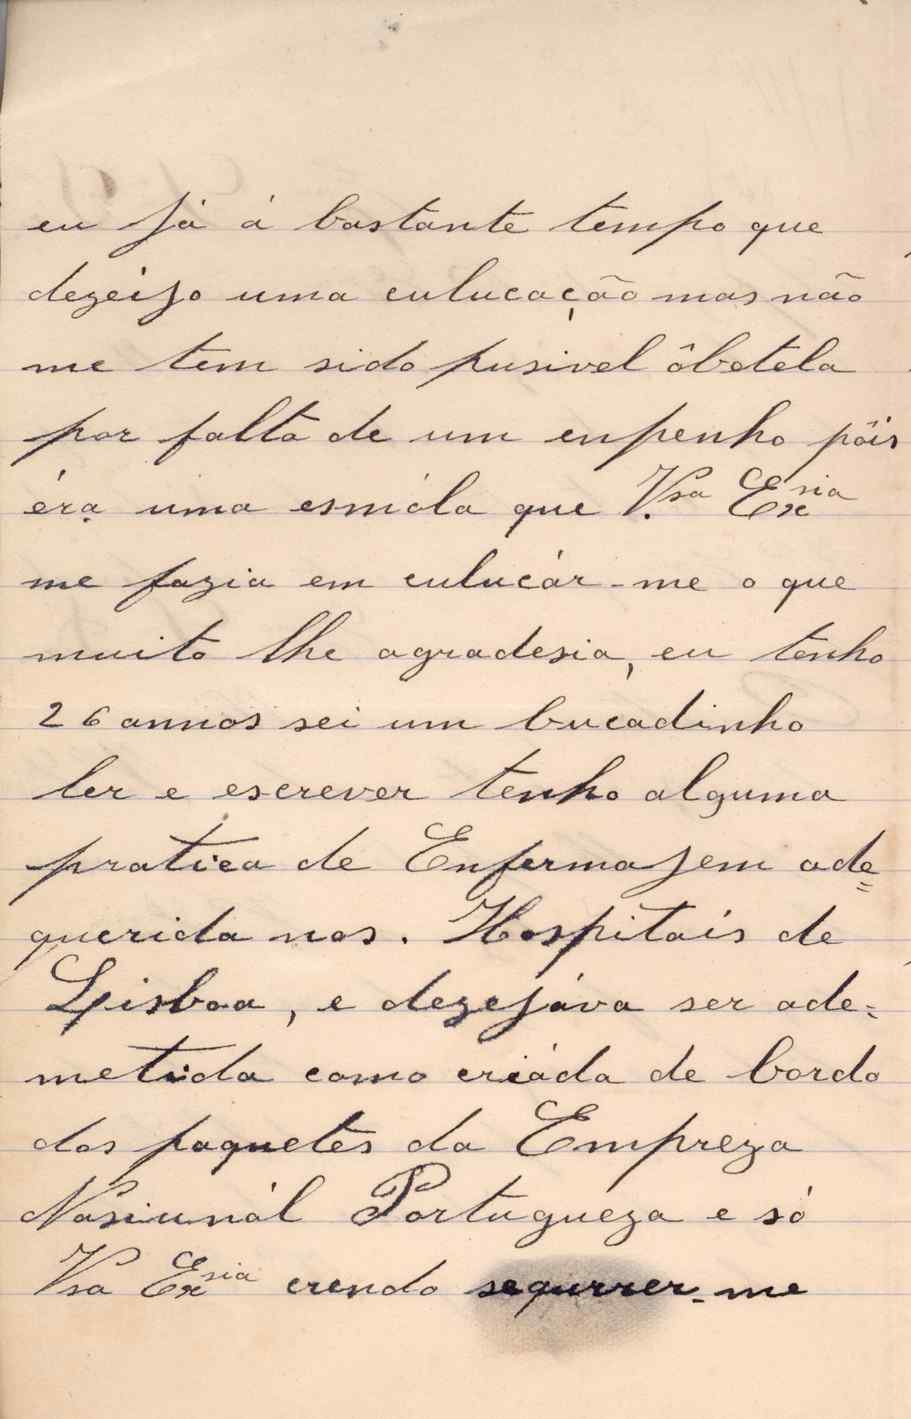 eu já á bastante tempo que
dezeijo uma culucação mas não
me tem sido pusivel ôbetela
por falta de um enpenho pôis
éra uma esmóla que V.sa Exsia
me fazia em culucár-me o que
muito lhe agradesia, eu tenho
26 annos sei um bucadinho
ler e escrever tenho alguma
pratica de Enfermajem ade=
querida nos. Hospitais de
Lisboa, e dezejáva ser ade=
metida como criáda de bordo
dos paquetes da Empreza
Nasiunál Portugueza e só
Vsa Exsia crendo sequrrer-me